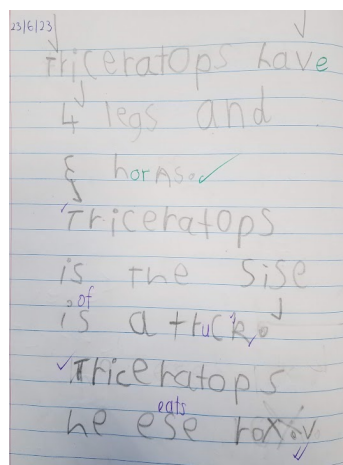 23/6/23
Triceratops have
4 legs and
3 hornse.
Triceratops
is the sise
of
is a truck.
Triceratops
eats
he ese